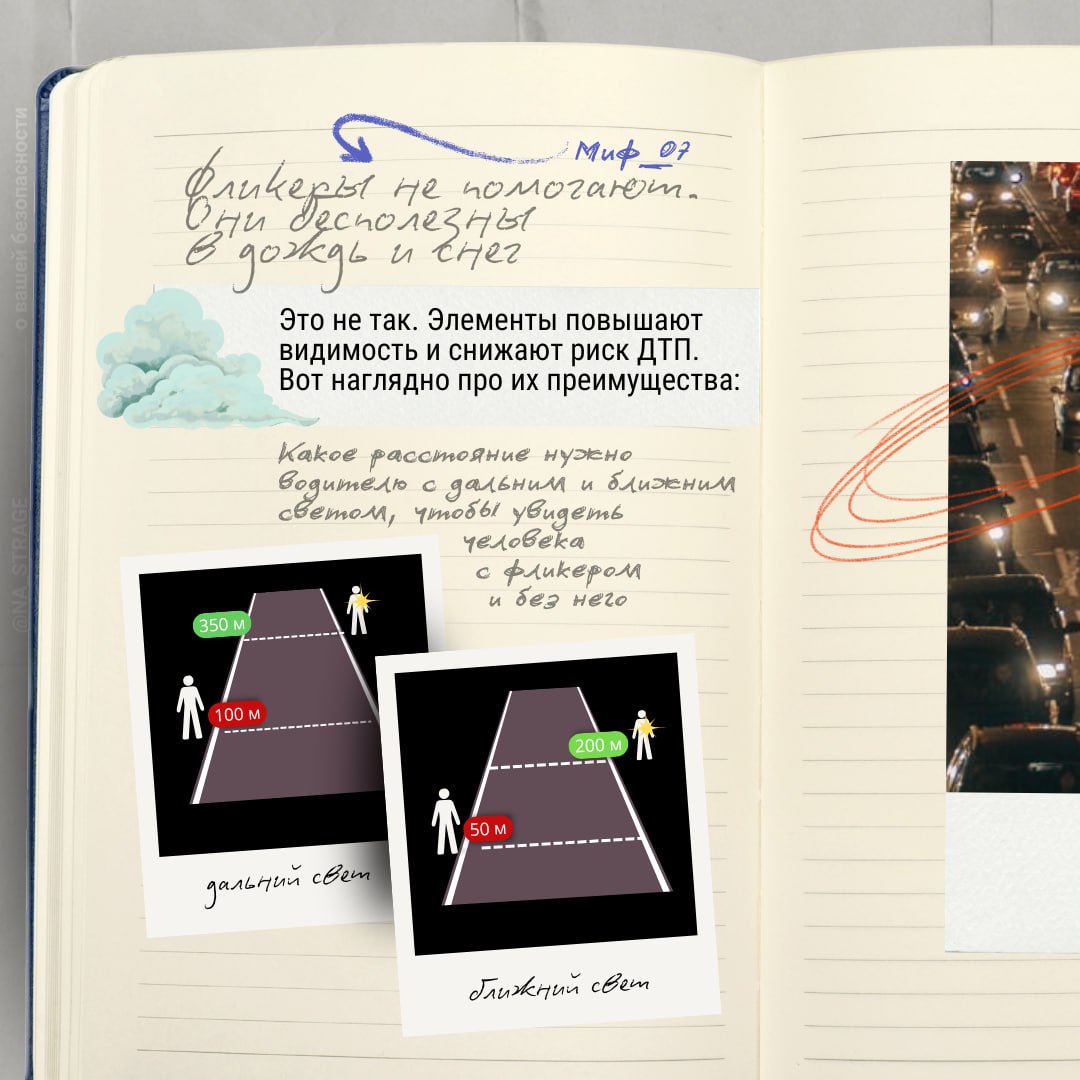 Миф_07
Фликеры не помогают.
Они бесполезны
в дождь и снег
Это не так. Элементы повышают
видимость и снижают риск ДТП.
Вот наглядно про их преимущества:
Какое расстояние нужно
водителю с дальним и ближним
светом, чтобы увидеть
человека
с фликером
и без него
350 м
100 м
дальний свет
200 м
50 м
ближний свет
о вашей безопасности
@NA_STRAGE